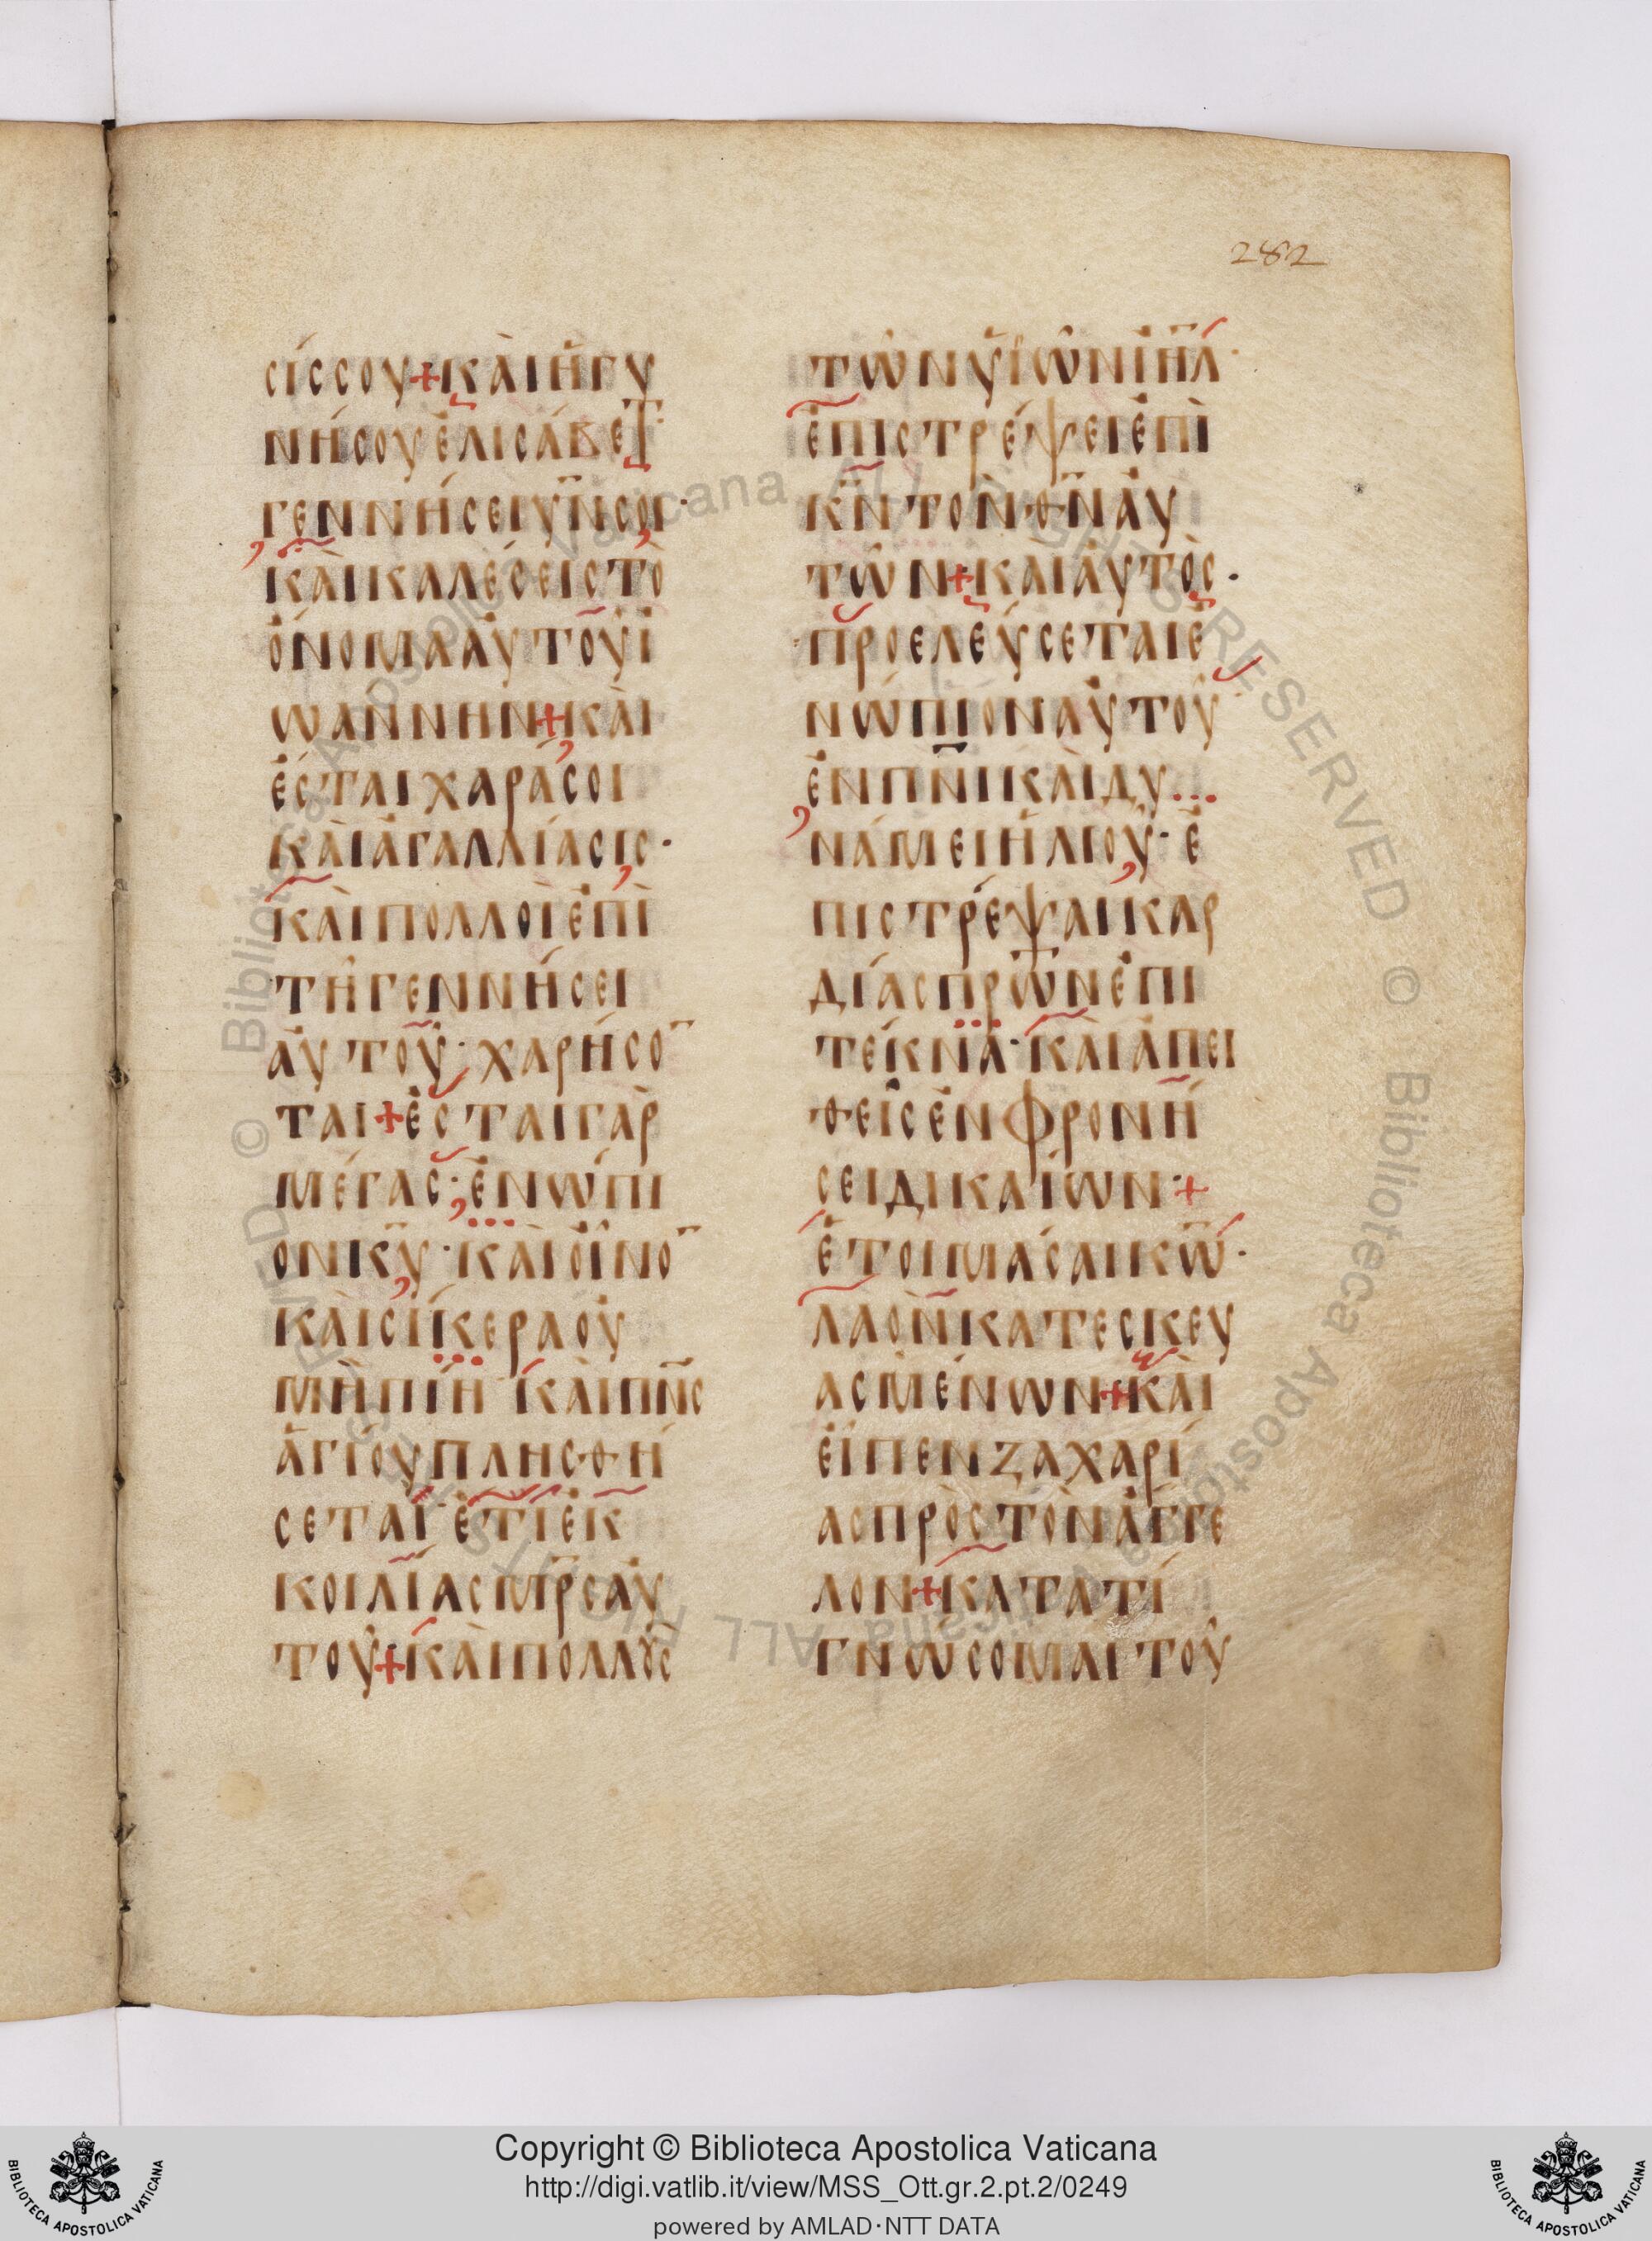 282
σίσσου + καὶ ἡ γυ
νή σου ἐλισάβετ·
γεννήσει υν̄ σοι·
καὶ καλέσεις τὸ
ὄνομα αὐτοῦ ἰ
ωαννην + καὶ
ἔσται χαρά σοι
καὶ ἀγαλλίασις·
καὶ πολλοὶ ἐπὶ
τῇ γεννήσει
αὐτοῦ· χαρήσο̄
ται + ἔσται γὰρ
μέγας· ἐνώπι
ον κῡ· καὶ οἶνο̄
καὶ σίκερα οὐ
μὴ πίῃ καὶ πν̄ς
ἁγίου πλησθή
σεται ἔτι ἐκ
κοιλίας μρ̄ς αὐ
τοῦ + καὶ πολλοὺς
τῶν υἱῶν ιη̄λ·
ἐπιστρέψει ἐπὶ
κν̄ τὸν θν̄ αὐ
τῶν + καὶ αὐτὸς·
προελεύσεται ἐ
νώπιον αὐτοῦ
ἐν πν̄ι καὶ δυ
νάμει ἠλιοῦ· ἐ
πιστρέψαι καρ
δίας πρ̄ων ἐπι
τέκνα· καὶ ἀπει
θεῖς ἐν φρονή
σει δικαίων· +
ἑτοιμάσαι κω̄·
λαὸν κατεσκευ
ασμένων + καὶ
εἶπεν ζαχαρί
ας πρὸς τὸν ἄγγε
λον + κατα τί
γνώσομαι τοῦ
Copyright © Biblioteca Apostolica Vaticana
http://digi.vatlib.it/view/MSS_Ott.gr.2.pt.2/0249
powered by AMLAD·NTT DATA
BIBLIOTECA APOSTOLICA VATICANA
BIBLIOTECA APOSTOLICA VATICANA
© Biblioteca Apostolica Vaticana ALL RIGHTS RESERVED © Biblioteca Apostolica Vaticana ALL RIGHTS RESERVED